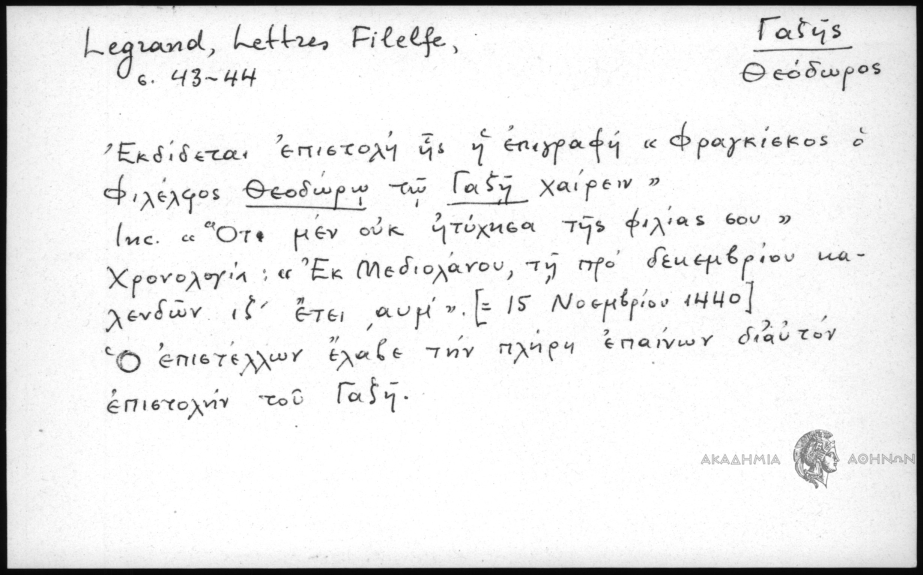 Legrand, Lettres Filelfe,
σ. 43-44
Γαζῆς
Θεόδωρος
Ἐκδίδεται ἐπιστολή ἧς ἡ ἐπιγραφή « Φραγκίσκος ὁ
Φιλέλφος Θεοδώρῳ τῷ Γαζῇ χαίρειν »
Inc. « Ὅτι μέν οὐκ ἠτύχησα τῆς φιλίας σου »
Χρονολογία : « Ἐκ Μεδιολάνου, τῇ πρό δεκεμβρίου κα-
λενδῶν ιζ΄ ἔτει ͵αυμ΄ ». [= 15 Νοεμβρίου 1440]
Ὁ ἐπιστέλλων ἔλαβε τήν πλήρη ἐπαίνων δι᾽ αὐτόν
ἐπιστολήν τοῦ Γαζῆ.
ΑΚΑΔΗΜΙΑ ΑΘΗΝΩΝ